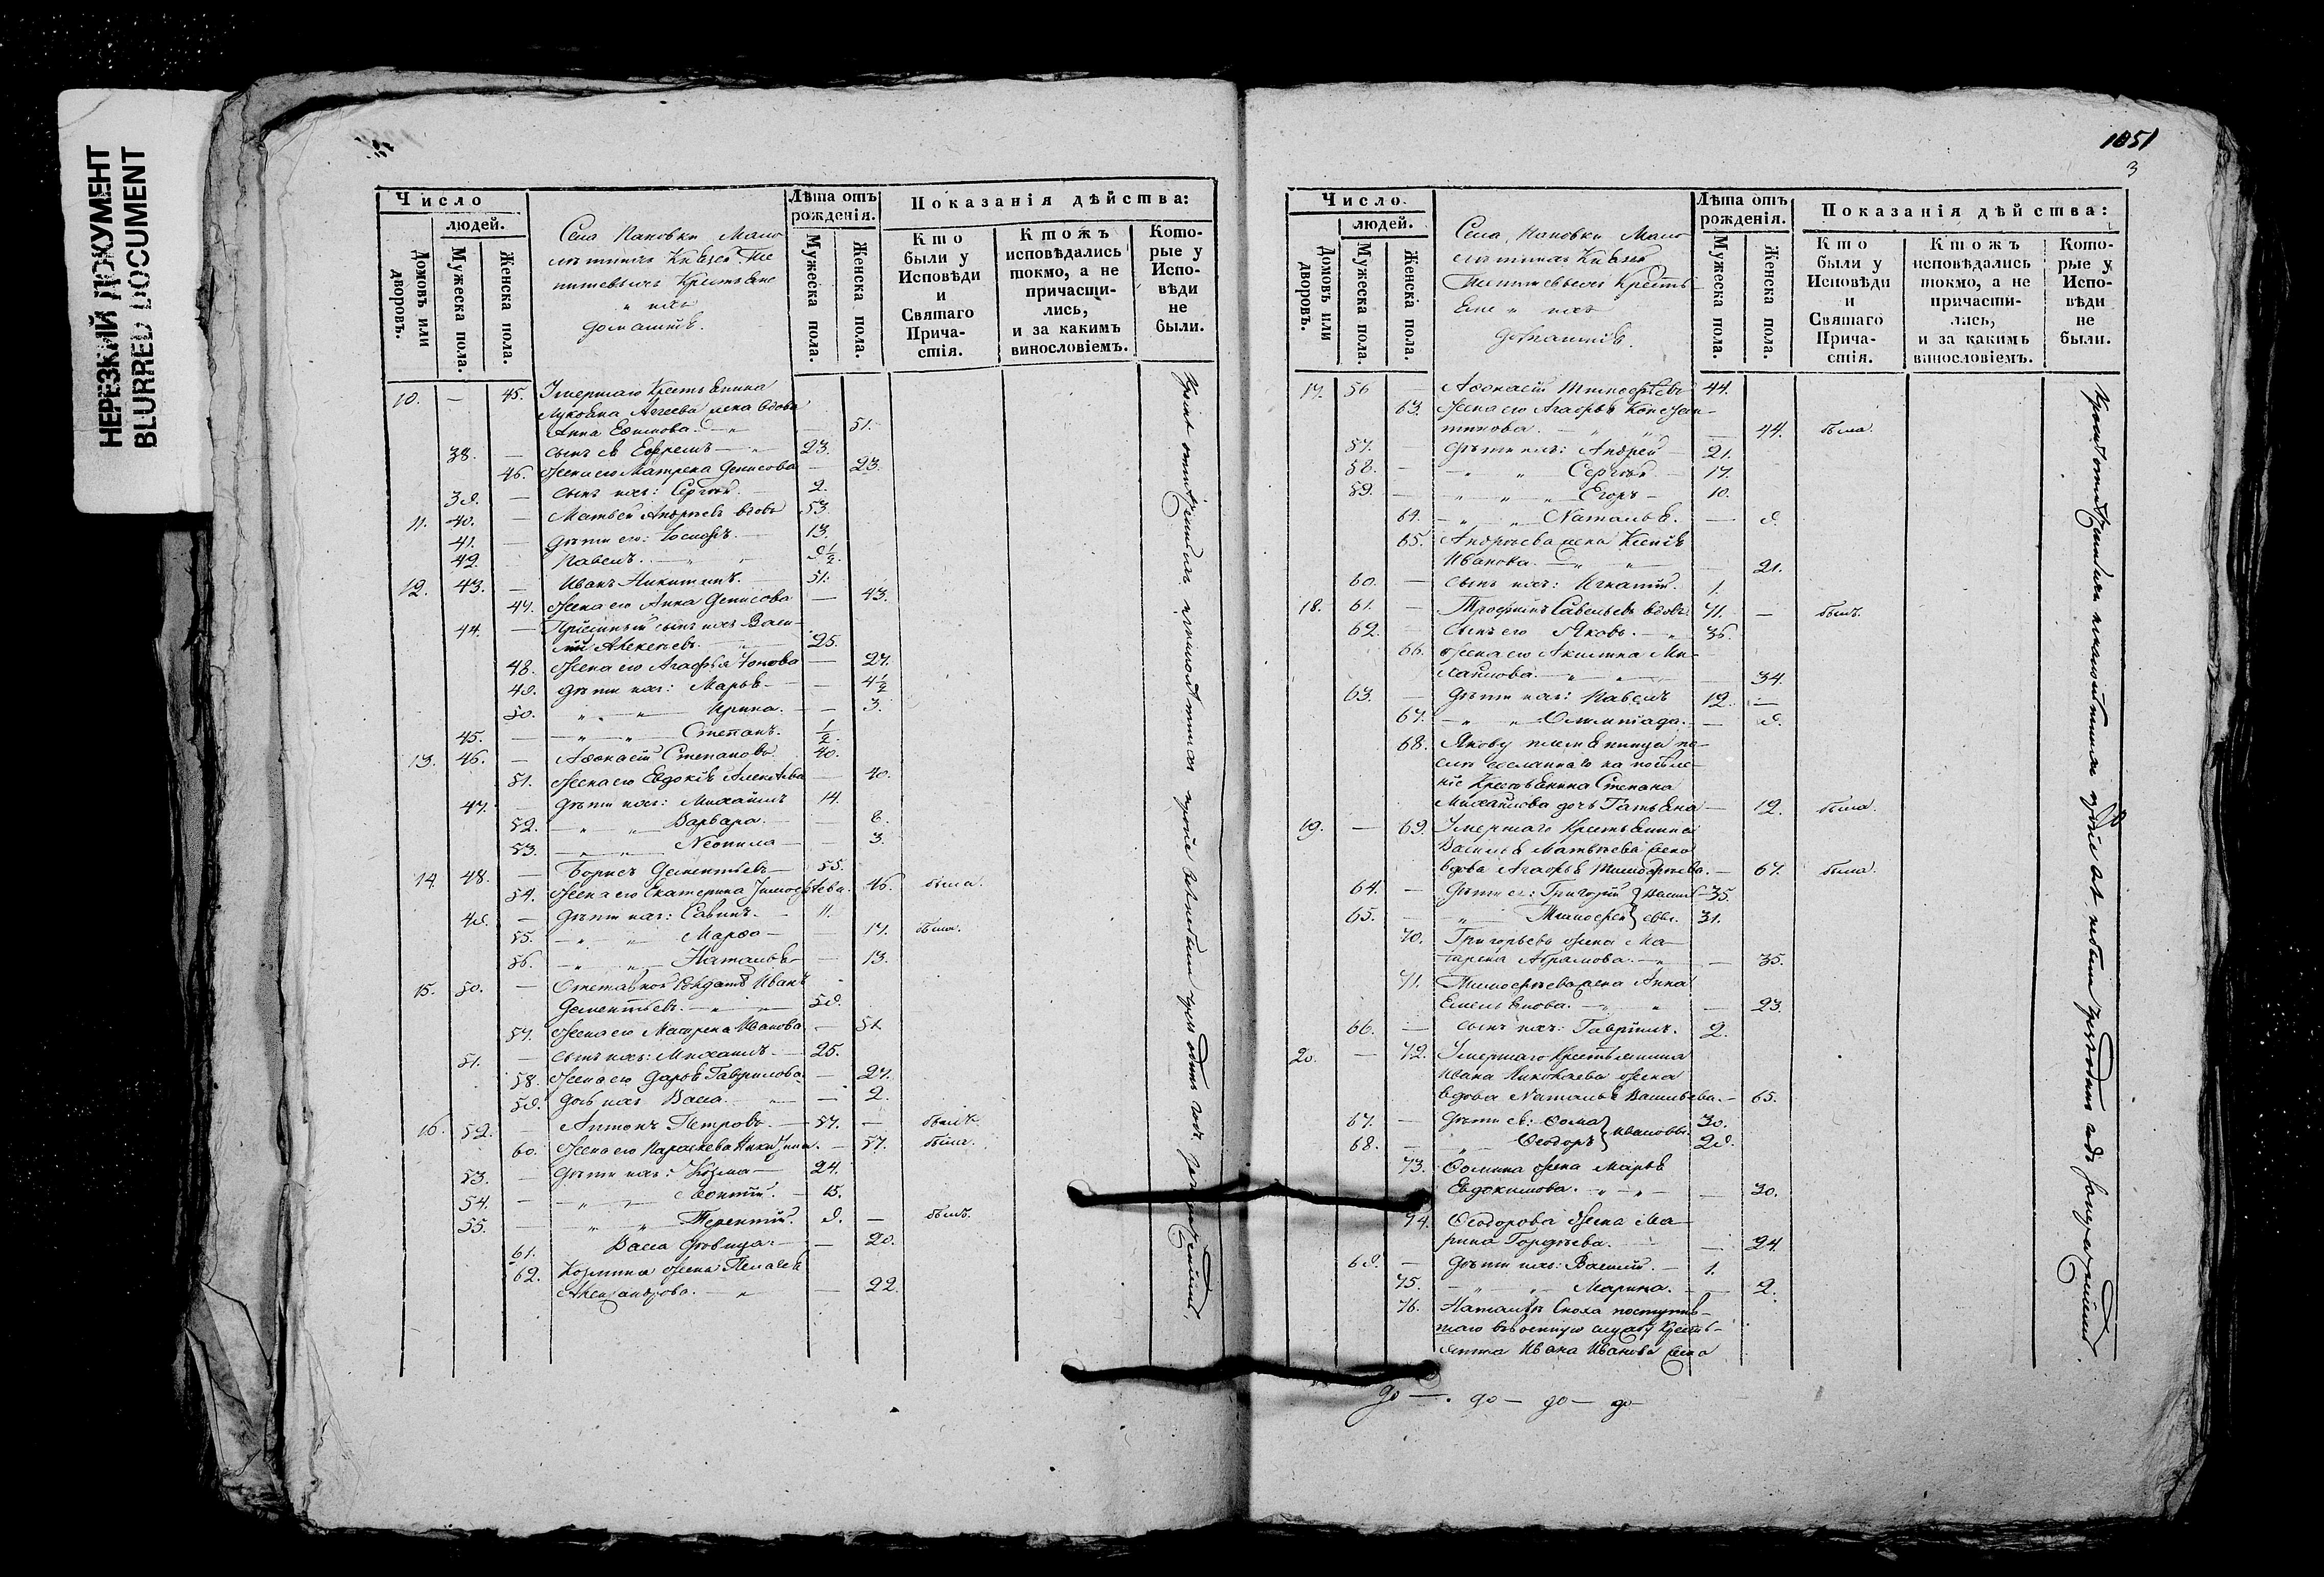 НЕРЕЗКИЙ ДОКУМЕНТ
BLURRED DOCUMENT
Число
людей.
Домовъ или дворовъ.
Мужеска пола.
Женска пола.
Села Пановки Мало
лѣтныхъ Князей Те
нишевыхъ Крестьяне
и ихъ
домашніе.
Лѣта отъ
рожденія.
Мужеска пола.
Женска пола.
Показанія дѣйства:
Кто
были у
Исповѣди
и
Святаго
Прича-
стія.
Ктожъ
исповѣдались
токмо, а не
причасти-
лись,
и за какимъ
винословіемъ.
Кото-
рые у
Испо-
вѣди
не
были.
10. — 45. Умершаго Крестьянина
Лукояна Агѣева жена вдова
Анна Ефимова. — 51.
38. — сынъ ея Ефремъ — 23.
46. Жена его Матрена Денисова — 23.
39. — сынъ ихъ: Сергѣй. 2.
11. 40. — Матвей Андреевъ вдовъ 53.
41. — дѣти его: Іосифъ. — 13.
42. Павелъ. — 9½.
12. 43. — Иванъ Никитинъ. 51.
47. Жена его Анна Денисова — 43.
44. — Пріемный сынъ ихъ Васи-
лій Алексѣевъ. 25.
48. Жена его Агафья — 27.
49. дѣти ихъ: Марья — 4½
50. „ — „ Ирина. — 3.
45. — „ — „ Степанъ. ½.
13. 46. — Афонасій Степановъ 40.
51. Жена его Евдокія Алексѣева — 40.
47. — дѣти ихъ: Михайлъ 14.
52. — „ — „ Варвара. — 8.
53. — „ — „ Неонила — 3.
14. 48. — Борисъ Дементьевъ — 55.
54. Жена его Екатерина Тимофѣева. 46. была.
49. — дѣти ихъ: Савинъ. — 11.
55. — „ — „ Марфа — 17. была.
56. — „ — „ Наталья — 13.
15. 50. — Отставной Солдатъ Иванъ
Дементьевъ. — 59.
57. Жена его Матрена Иванова — 51.
51. — сынъ ихъ: Михаилъ. — 25.
58. Жена его Дарья Гаврилова — 27.
59. дочь ихъ Васса — 2.
16. 52. — Антонъ Петровъ. — 57. — былъ.
60. Жена его Параскева Никитина. — 57. была.
53. — дѣти ихъ: Козма — 24.
54. — „ — Леонтій. — 15.
55. — „ „ Терентій. 9. — былъ.
61. Васса дѣвица — 20.
62. Козмина жена Пелагея
Александрова. — 22.
1051
3
Число
людей.
Домовъ или дворовъ.
Мужеска пола.
Женска пола.
Села Пановки Мало
лѣтныхъ Князей
Тенишевыхъ Кресть
яне и ихъ
домашніе.
Лѣта отъ
рожденія.
Мужеска пола.
Женска пола.
Показанія дѣйства:
Кто
были у
Исповѣди
и
Святаго
Прича-
стія.
Ктожъ
исповѣдались
токмо, а не
причасти-
лись,
и за какимъ
винословіемъ.
Кото-
рые у
Испо-
вѣди
не
были.
17. 56 Афонасій Тимофѣевъ 44.
63. Жена его Агафья Констан-
тинова. — 44. была.
57. — дѣти ихъ: Андрей — 21.
58. — „ „ Сергѣй — 17.
59. — „ „ Егоръ — 10.
64. — „ — „ Наталья. — 9.
65. Андреева жена Ксенія
Иванова. — 21.
60. — сынъ ихъ: Игнатій. 1.
18. 61. — Трофимъ Савельевъ вдовъ. 71. — былъ.
62. — сынъ его Яковъ. — 36.
66. Жена его Акилина Ми-
хайлова. — 34.
63. — дѣти ихъ: Павелъ 12. —
67. — „ — „ Олимпіада. — 9.
68. Якову племянница по-
слѣ сосланнаго на поселе-
ніе Крестьянина Степана
Михайлова дочь Татьяна — 12. была.
19. — 69. Умершаго Крестьянина
Василья Матвѣева жена
вдова Агафья Тимофеева. — 67. была.
64. — дѣти ея: Григорій } Василь- 35.
65. — „ — Тимофей } евы. 31.
70. Григорьева жена Ма-
трена Абрамова. — 35.
71. Тимофеева жена Анна
Емельянова. — 23.
66. — сынъ ихъ: Гавріилъ. 2.
20. — 72. Умершаго Крестьянина
Ивана Николаева жена
вдова Наталья Васильева. — 65.
67. — дѣти ея: Фома } Ивановы. 30.
68. — „ — Феодоръ } 29.
73. Фомина жена Марья
Евдокимова. — 30.
74. Феодорова жена Ма-
рина Гордѣева. — 24.
69. — дѣти ихъ: Василій. — 1.
75. — „ — „ Марина. — 2.
76. Натальѣ Сноха поступив-
шаго въ военную службу Кресть-
янина Ивана Иванова жена
до — . до — до — до